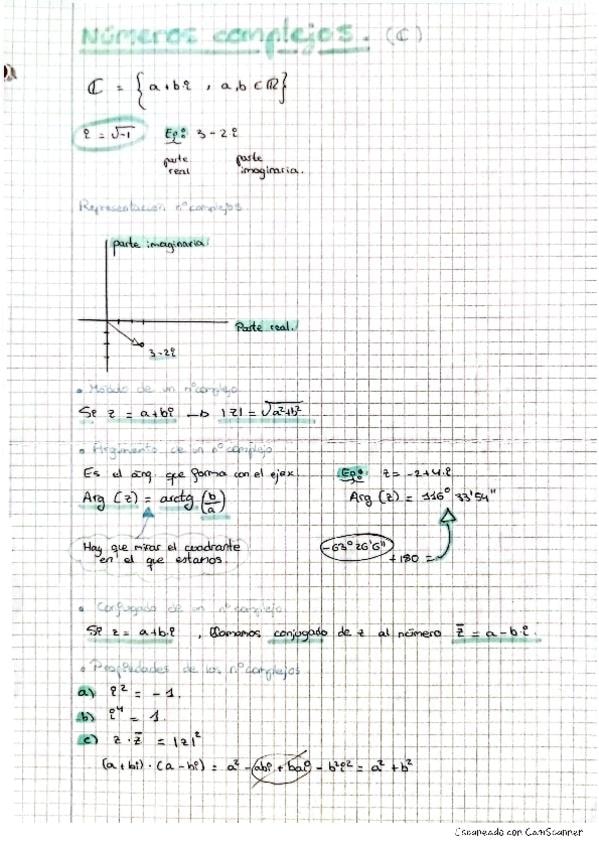 Números complejos. (ℂ)
ℂ = { a+b·i , a,b ∈ ℝ}
i = √-1 Eg: 3-2i
parte real parte imaginaria.
Representación nº complejos.
parte imaginaria.
Parte real.
3-2i
• Módulo de un nº complejo
Si z = a+bi → |z| = √a²+b²
• Argumento de un nº complejo
Es el áng que forma con el eje x.
Arg (z) = arctg (b/a)
Hay que mirar el cuadrante
en el que estamos.
Eg: z = -2+4·i
Arg (z) = 116° 33'54"
-63° 26'6"
+180 =
• Conjugado de un nº complejo
Si z = a+b·i , llamamos conjugado de z al número z̄ = a-b·i.
• Propiedades de los nº complejos
a) i² = -1.
b) i⁴ = 1.
c) z · z̄ = |z|²
(a+bi)·(a-bi) = a² - abi + bai - b²i² = a² + b²
Escaneado con CamScanner